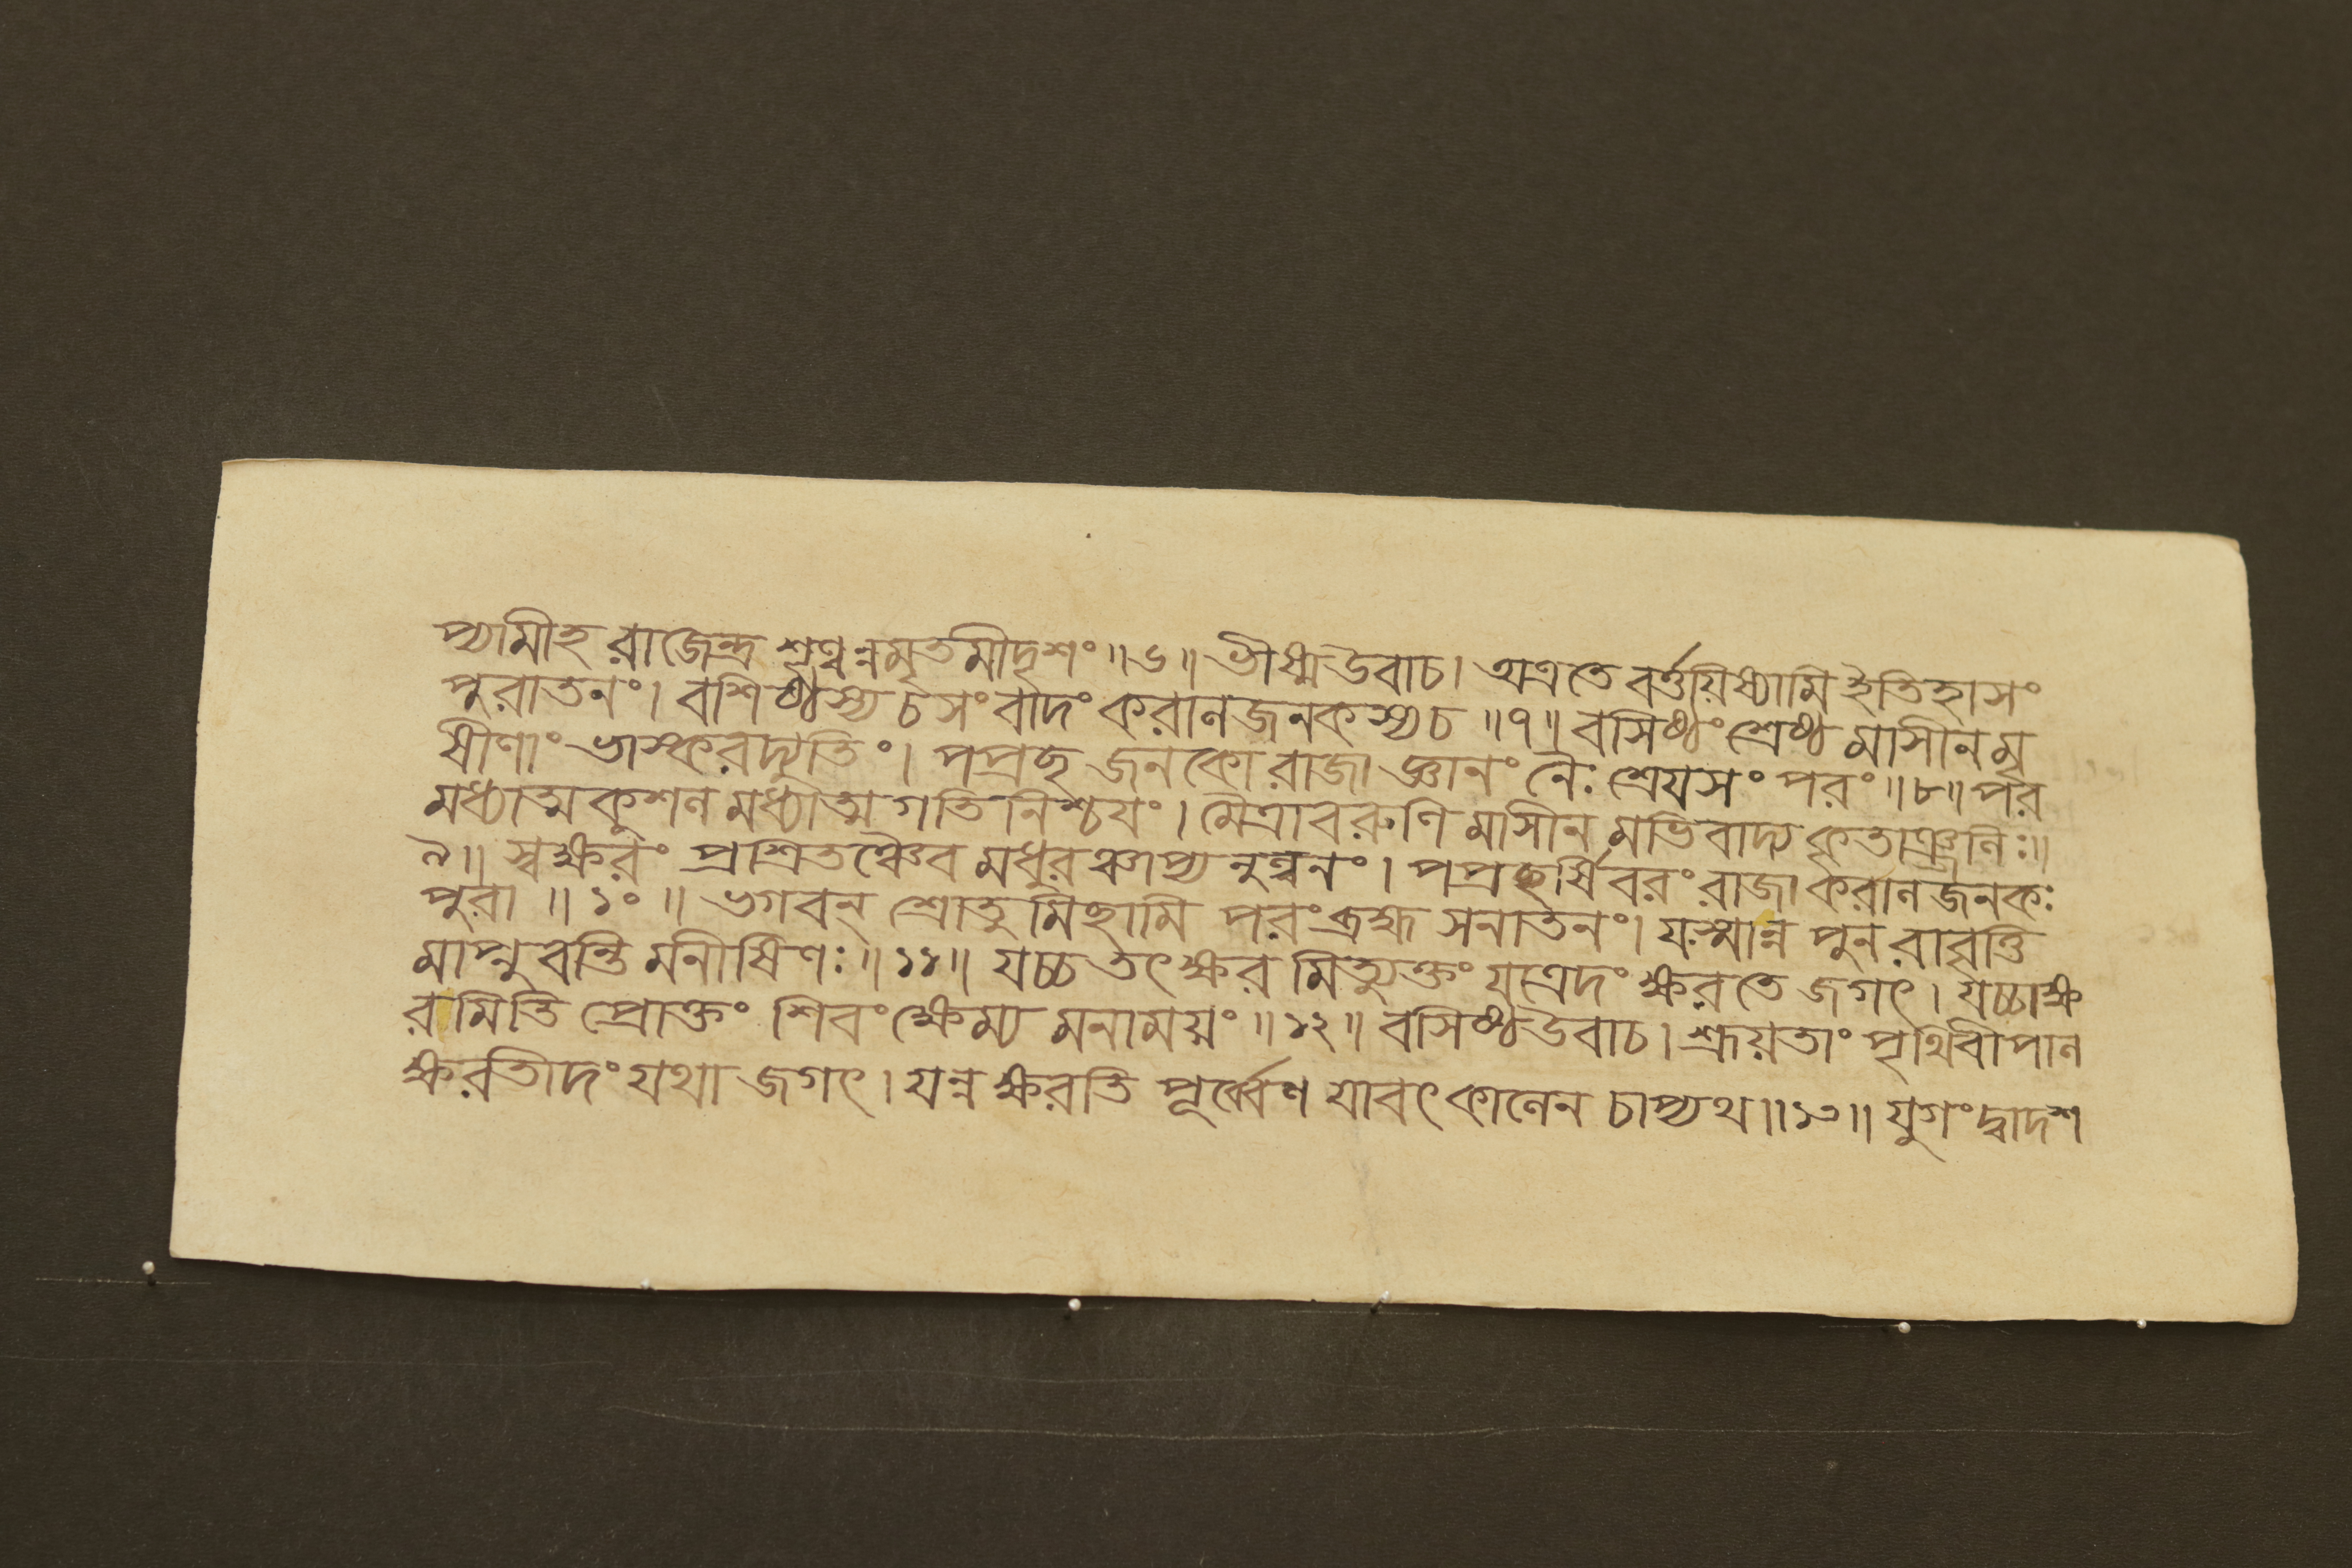 প্যামীহ রাজেন্দ্র শৃণ্বন্নমৃতমীদৃশং ॥৬॥ ভীষ্মউবাচ। অত্রতে বর্ত্তয়িষ্যামি ইতিহাসং
পুরাতনং। বশিষ্ঠস্য চসংবাদং করানজনকস্যচ ॥৭॥ বসিষ্ঠং শ্রেষ্ঠ মাসীনমৃ
ষীণাং ভাস্করদ্যুতিং। পপ্রছ জনকো রাজা জ্ঞানং নৈঃ শ্রেযসং পরং ॥৮॥ পর
মধ্যাত্মকুশন মধ্যাত্মগতিনিশ্চযং। মৈত্রাবরুণি মাসীন মভিবাদ্য কৃতাঞ্জনিঃ॥
৯॥ স্বক্ষরং প্রশ্রিতঞ্চৈব মধুরঞ্চাপ্য নুন্বনং। পপ্রছর্ষিবরং রাজা করানজনকঃ
পুরা ॥১০॥ ভগবন্ শ্রোতু মিছামি পরংব্রহ্ম সনাতনং। যস্মান্ন পুনরাবৃত্তি
মাপ্নুবন্তি মনীষিণঃ॥১১॥ যচ্চ তৎ ক্ষর মিত্যুক্তং যত্রেদং ক্ষরতে জগৎ। যচ্চাক্ষ
রমিতি প্রোক্তং শিবং ক্ষেম্য মনাময়ং ॥১২॥ বসিষ্ঠউবাচ। শ্রূয়তাং পৃথিবীপান
ক্ষরতীদং যথা জগৎ। যন্ন ক্ষরতি পূর্ব্বেণ যাবৎ কানেন চাপ্যথ॥১৩॥ যুগং দ্বাদশ